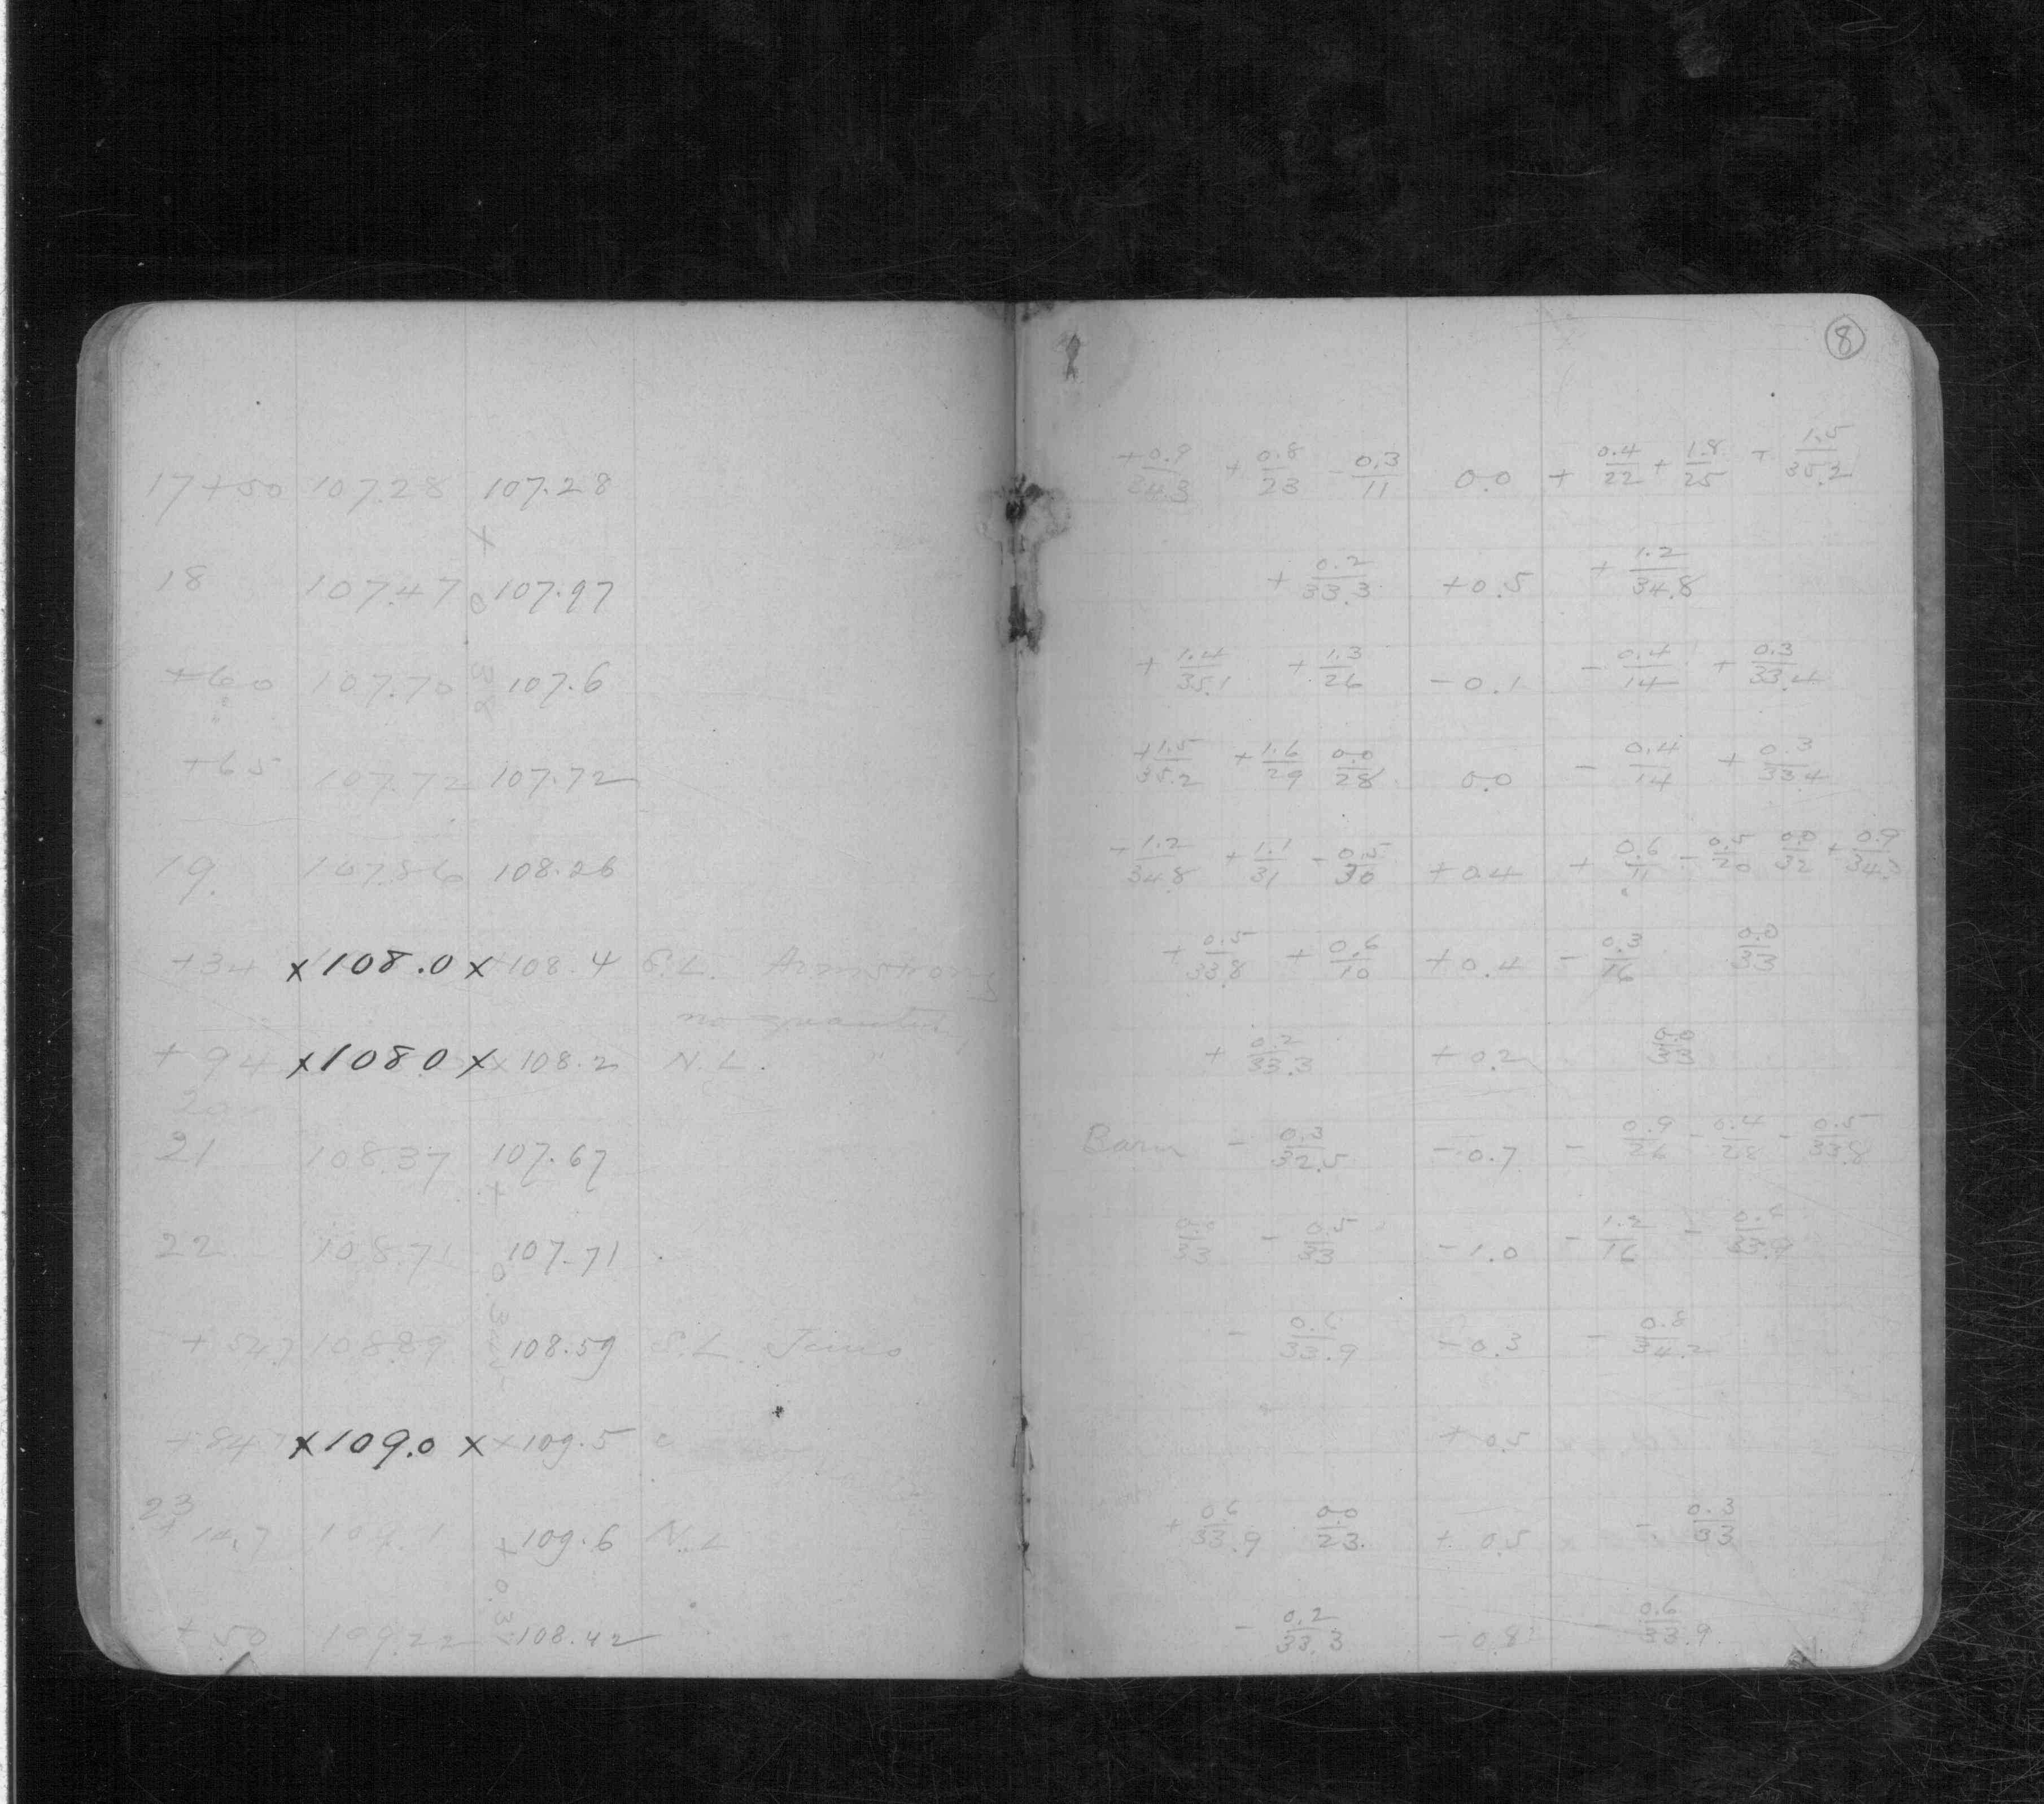 8
17+50 107.28 107.28
+0.9/34.3 + 0.8/23 - 0.3/11 0.0 + 0.4/22 + 1.8/25 + 1.5/35.2
x
18 107.47 107.97
+ 0.2/33.3 +0.5 + 1.2/34.8
0.38
+60 107.70 107.6
+ 1.4/35.1 + 1.3/26 - 0.1 - 0.4/14 + 0.3/33.4
+65 107.72 107.72
+1.5/35.2 + 1.6/29 0.0/28 0.0 - 0.4/14 + 0.3/33.4
19 107.86 108.26
+ 1.2/34.8 + 1.1/31 - 0.5/30 + 0.4 + 0.6/11 - 0.5/20 0.0/32 + 0.9/34.3
+34 x108.0 x 108.4 S.L. Armstrong
+ 0.5/33.8 + 0.6/10 + 0.4 - 0.3/16 0.0/33
no
+ 94 x1080 x 108.2 N.L. "
+ 0.2/33.3 + 0.2 0.0/33
20
21 108.37 107.67
Barn - 0.3/32.5 - 0.7 - 0.9/26 - 0.4/28 - 0.5/33.8
+
22 108.71 107.71
0.0/33 - 0.5/33 - 1.0 - 1.2/16
+ 54.7 108.89 108.59 S.L.
- 0.6/33.9 - 0.3 - 0.8/34.2
+84.7 x109.0 x 109.5
+ 0.5
23
+14.7 109.1 109.6 N.L
+ 0.6/33.9 0.0/23 + 0.5 - 0.3/33
+ 0.3
+50 109.22 108.42
- 0.2/33.3 - 0.8 - 0.6/33.9